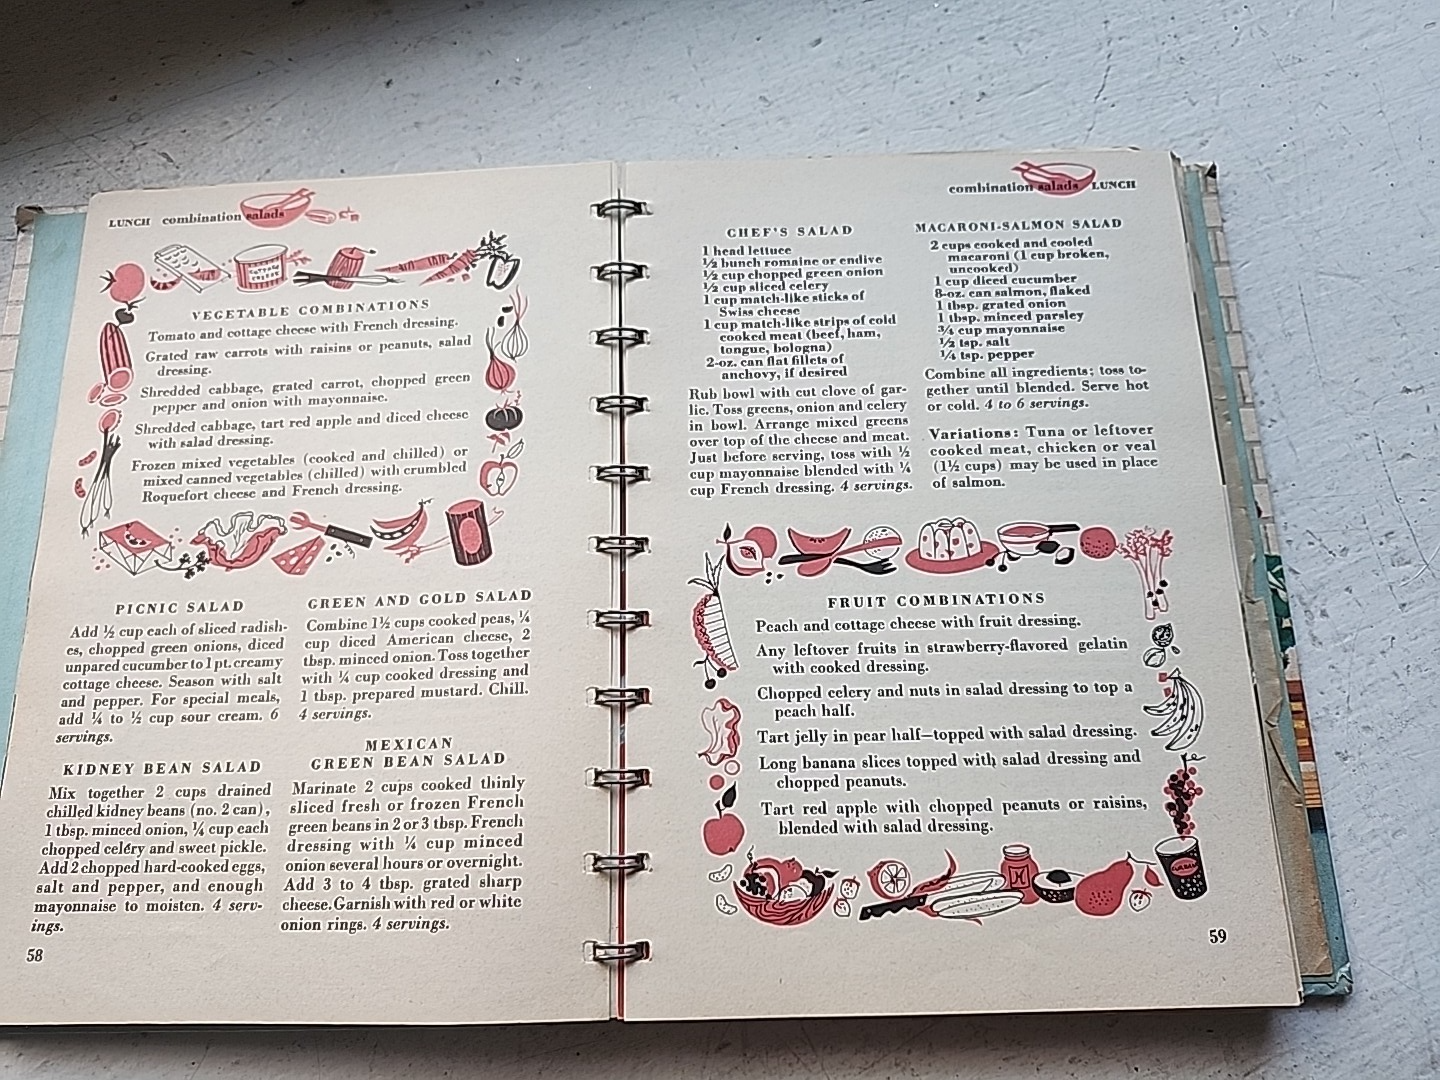 LUNCH combination salads
COTTAGE CHEESE
VEGETABLE COMBINATIONS
Tomato and cottage cheese with French dressing.
Grated raw carrots with raisins or peanuts, salad
dressing.
Shredded cabbage, grated carrot, chopped green
pepper and onion with mayonnaise.
Shredded cabbage, tart red apple and diced cheese
with salad dressing.
Frozen mixed vegetables (cooked and chilled) or
mixed canned vegetables (chilled) with crumbled
Roquefort cheese and French dressing.
PICNIC SALAD
Add ½ cup each of sliced radish-
es, chopped green onions, diced
unpared cucumber to 1 pt. creamy
cottage cheese. Season with salt
and pepper. For special meals,
add ¼ to ½ cup sour cream. 6
servings.
KIDNEY BEAN SALAD
Mix together 2 cups drained
chilled kidney beans (no. 2 can),
1 tbsp. minced onion, ¼ cup each
chopped celery and sweet pickle.
Add 2 chopped hard-cooked eggs,
salt and pepper, and enough
mayonnaise to moisten. 4 serv-
ings.
58
GREEN AND GOLD SALAD
Combine 1½ cups cooked peas, ¼
cup diced American cheese, 2
tbsp. minced onion. Toss together
with ¼ cup cooked dressing and
1 tbsp. prepared mustard. Chill.
4 servings.
MEXICAN
GREEN BEAN SALAD
Marinate 2 cups cooked thinly
sliced fresh or frozen French
green beans in 2 or 3 tbsp. French
dressing with ¼ cup minced
onion several hours or overnight.
Add 3 to 4 tbsp. grated sharp
cheese. Garnish with red or white
onion rings. 4 servings.
combination salads LUNCH
CHEF'S SALAD
1 head lettuce
½ bunch romaine or endive
½ cup chopped green onion
½ cup sliced celery
1 cup match-like sticks of
Swiss cheese
1 cup match-like strips of cold
cooked meat (beef, ham,
tongue, bologna)
2-oz. can flat fillets of
anchovy, if desired
Rub bowl with cut clove of gar-
lic. Toss greens, onion and celery
in bowl. Arrange mixed greens
over top of the cheese and meat.
Just before serving, toss with ½
cup mayonnaise blended with ¼
cup French dressing. 4 servings.
MACARONI-SALMON SALAD
2 cups cooked and cooled
macaroni (1 cup broken,
uncooked)
1 cup diced cucumber
8-oz. can salmon, flaked
1 tbsp. grated onion
1 tbsp. minced parsley
¾ cup mayonnaise
½ tsp. salt
¼ tsp. pepper
Combine all ingredients; toss to-
gether until blended. Serve hot
or cold. 4 to 6 servings.
Variations: Tuna or leftover
cooked meat, chicken or veal
(1½ cups) may be used in place
of salmon.
FRUIT COMBINATIONS
Peach and cottage cheese with fruit dressing.
Any leftover fruits in strawberry-flavored gelatin
with cooked dressing.
Chopped celery and nuts in salad dressing to top a
peach half.
Tart jelly in pear half—topped with salad dressing.
Long banana slices topped with salad dressing and
chopped peanuts.
Tart red apple with chopped peanuts or raisins,
blended with salad dressing.
59